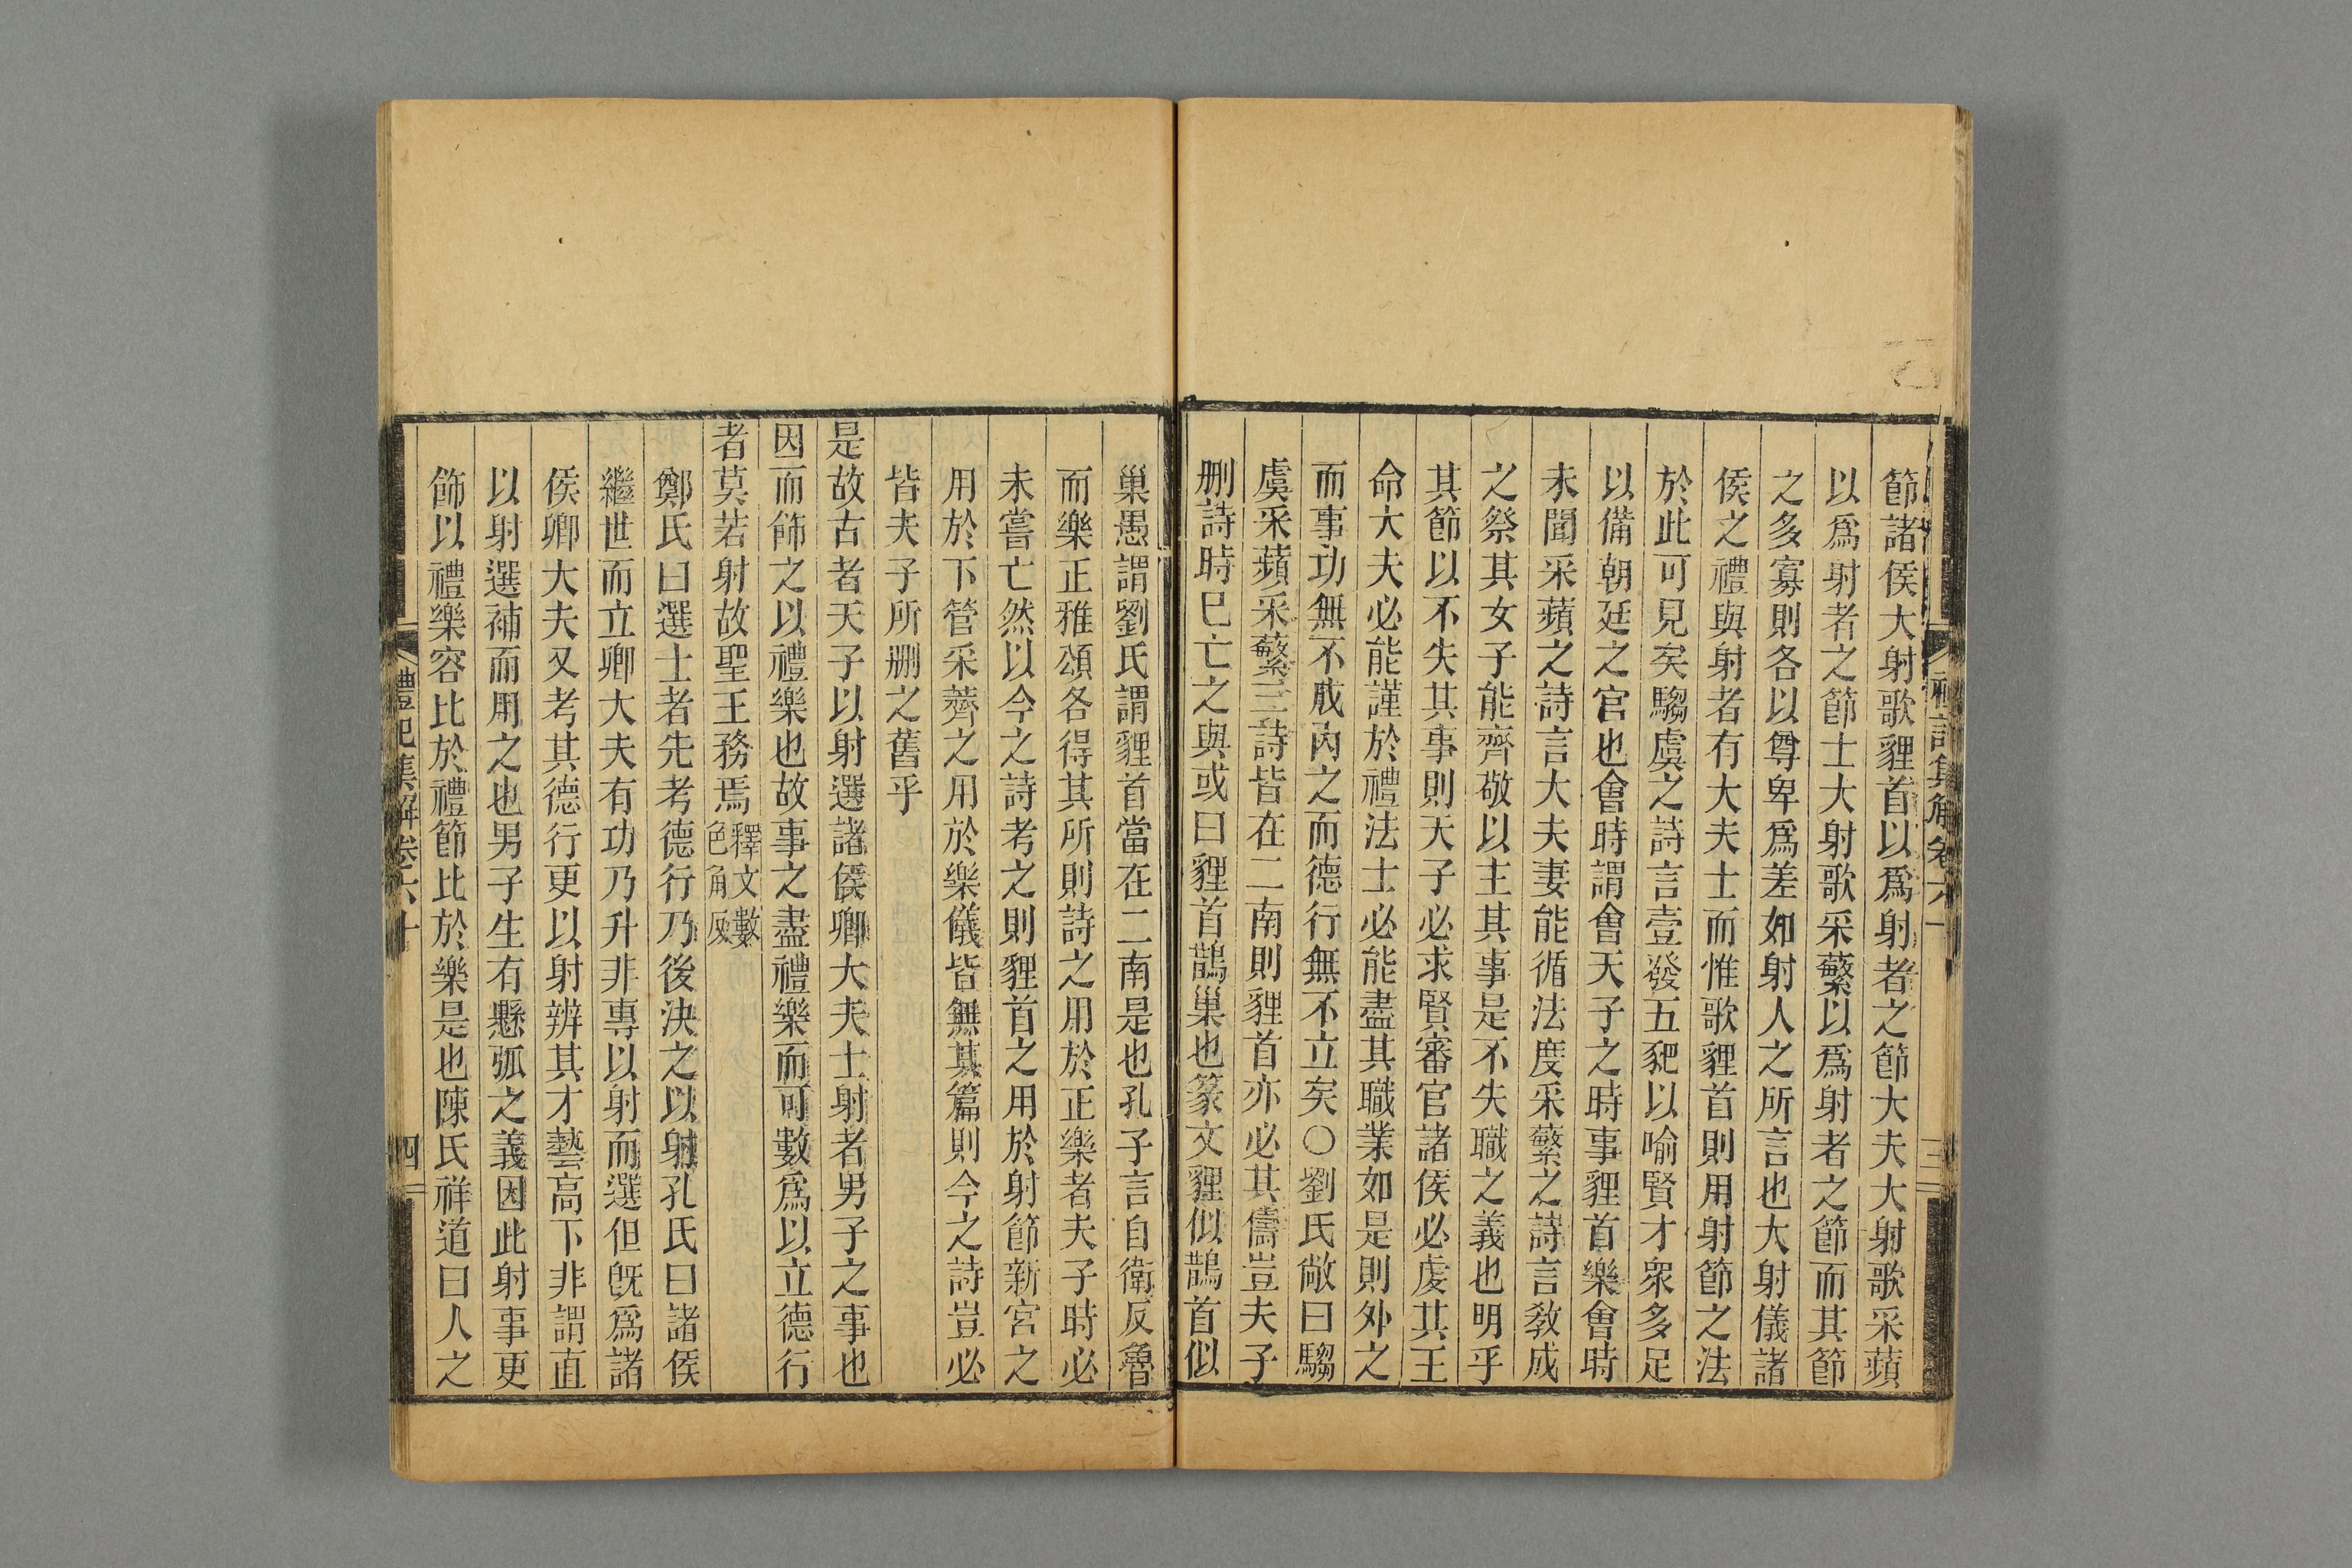 節諸侯大射歌貍首以爲射者之節大夫大射歌采蘋
以爲射者之節士大射歌采蘩以爲射者之節而其節
之多寡則各以尊卑爲差如射人之所言也大射儀諸
侯之禮與射者有大夫士而惟歌貍首則用射節之法
於此可見矣騶虞之詩言壹發五豝以喻賢才衆多足
以備朝廷之官也會時謂會天子之時事貍首樂會時
未聞采蘋之詩言大夫妻能循法度采蘩之詩言敎成
之祭其女子能齊敬以主其事是不失職之義也明乎
其節以不失其事則天子必求賢審官諸侯必虔其王
命大夫必能謹於禮法士必能盡其職業如是則外之
而事功無不成內之而德行無不立矣○劉氏敞曰騶
虞采蘋采蘩三詩皆在二南則貍首亦必其儔豈夫子
刪詩時已亡之與或曰貍首鵲巢也篆文貍似鵲首似
巢愚謂劉氏謂貍首當在二南是也孔子言自衛反魯
而樂正雅頌各得其所則詩之用於正樂者夫子時必
未嘗亡然以今之詩考之則貍首之用於射節新宮之
用於下管采薺之用於樂儀皆無其篇則今之詩豈必
皆夫子所刪之舊乎
是故古者天子以射選諸侯卿大夫士射者男子之事也
因而飾之以禮樂也故事之盡禮樂而可數爲以立德行
者莫若射故聖王務焉釋文數色角反
鄭氏曰選士者先考德行乃後決之以射孔氏曰諸侯
繼世而立卿大夫有功乃升非專以射而選但旣爲諸
侯卿大夫又考其德行更以射辨其才藝高下非謂直
以射選補而用之也男子生有懸弧之義因此射事更
飾以禮樂容比於禮節比於樂是也陳氏祥道曰人之
禮記集解卷六十
四